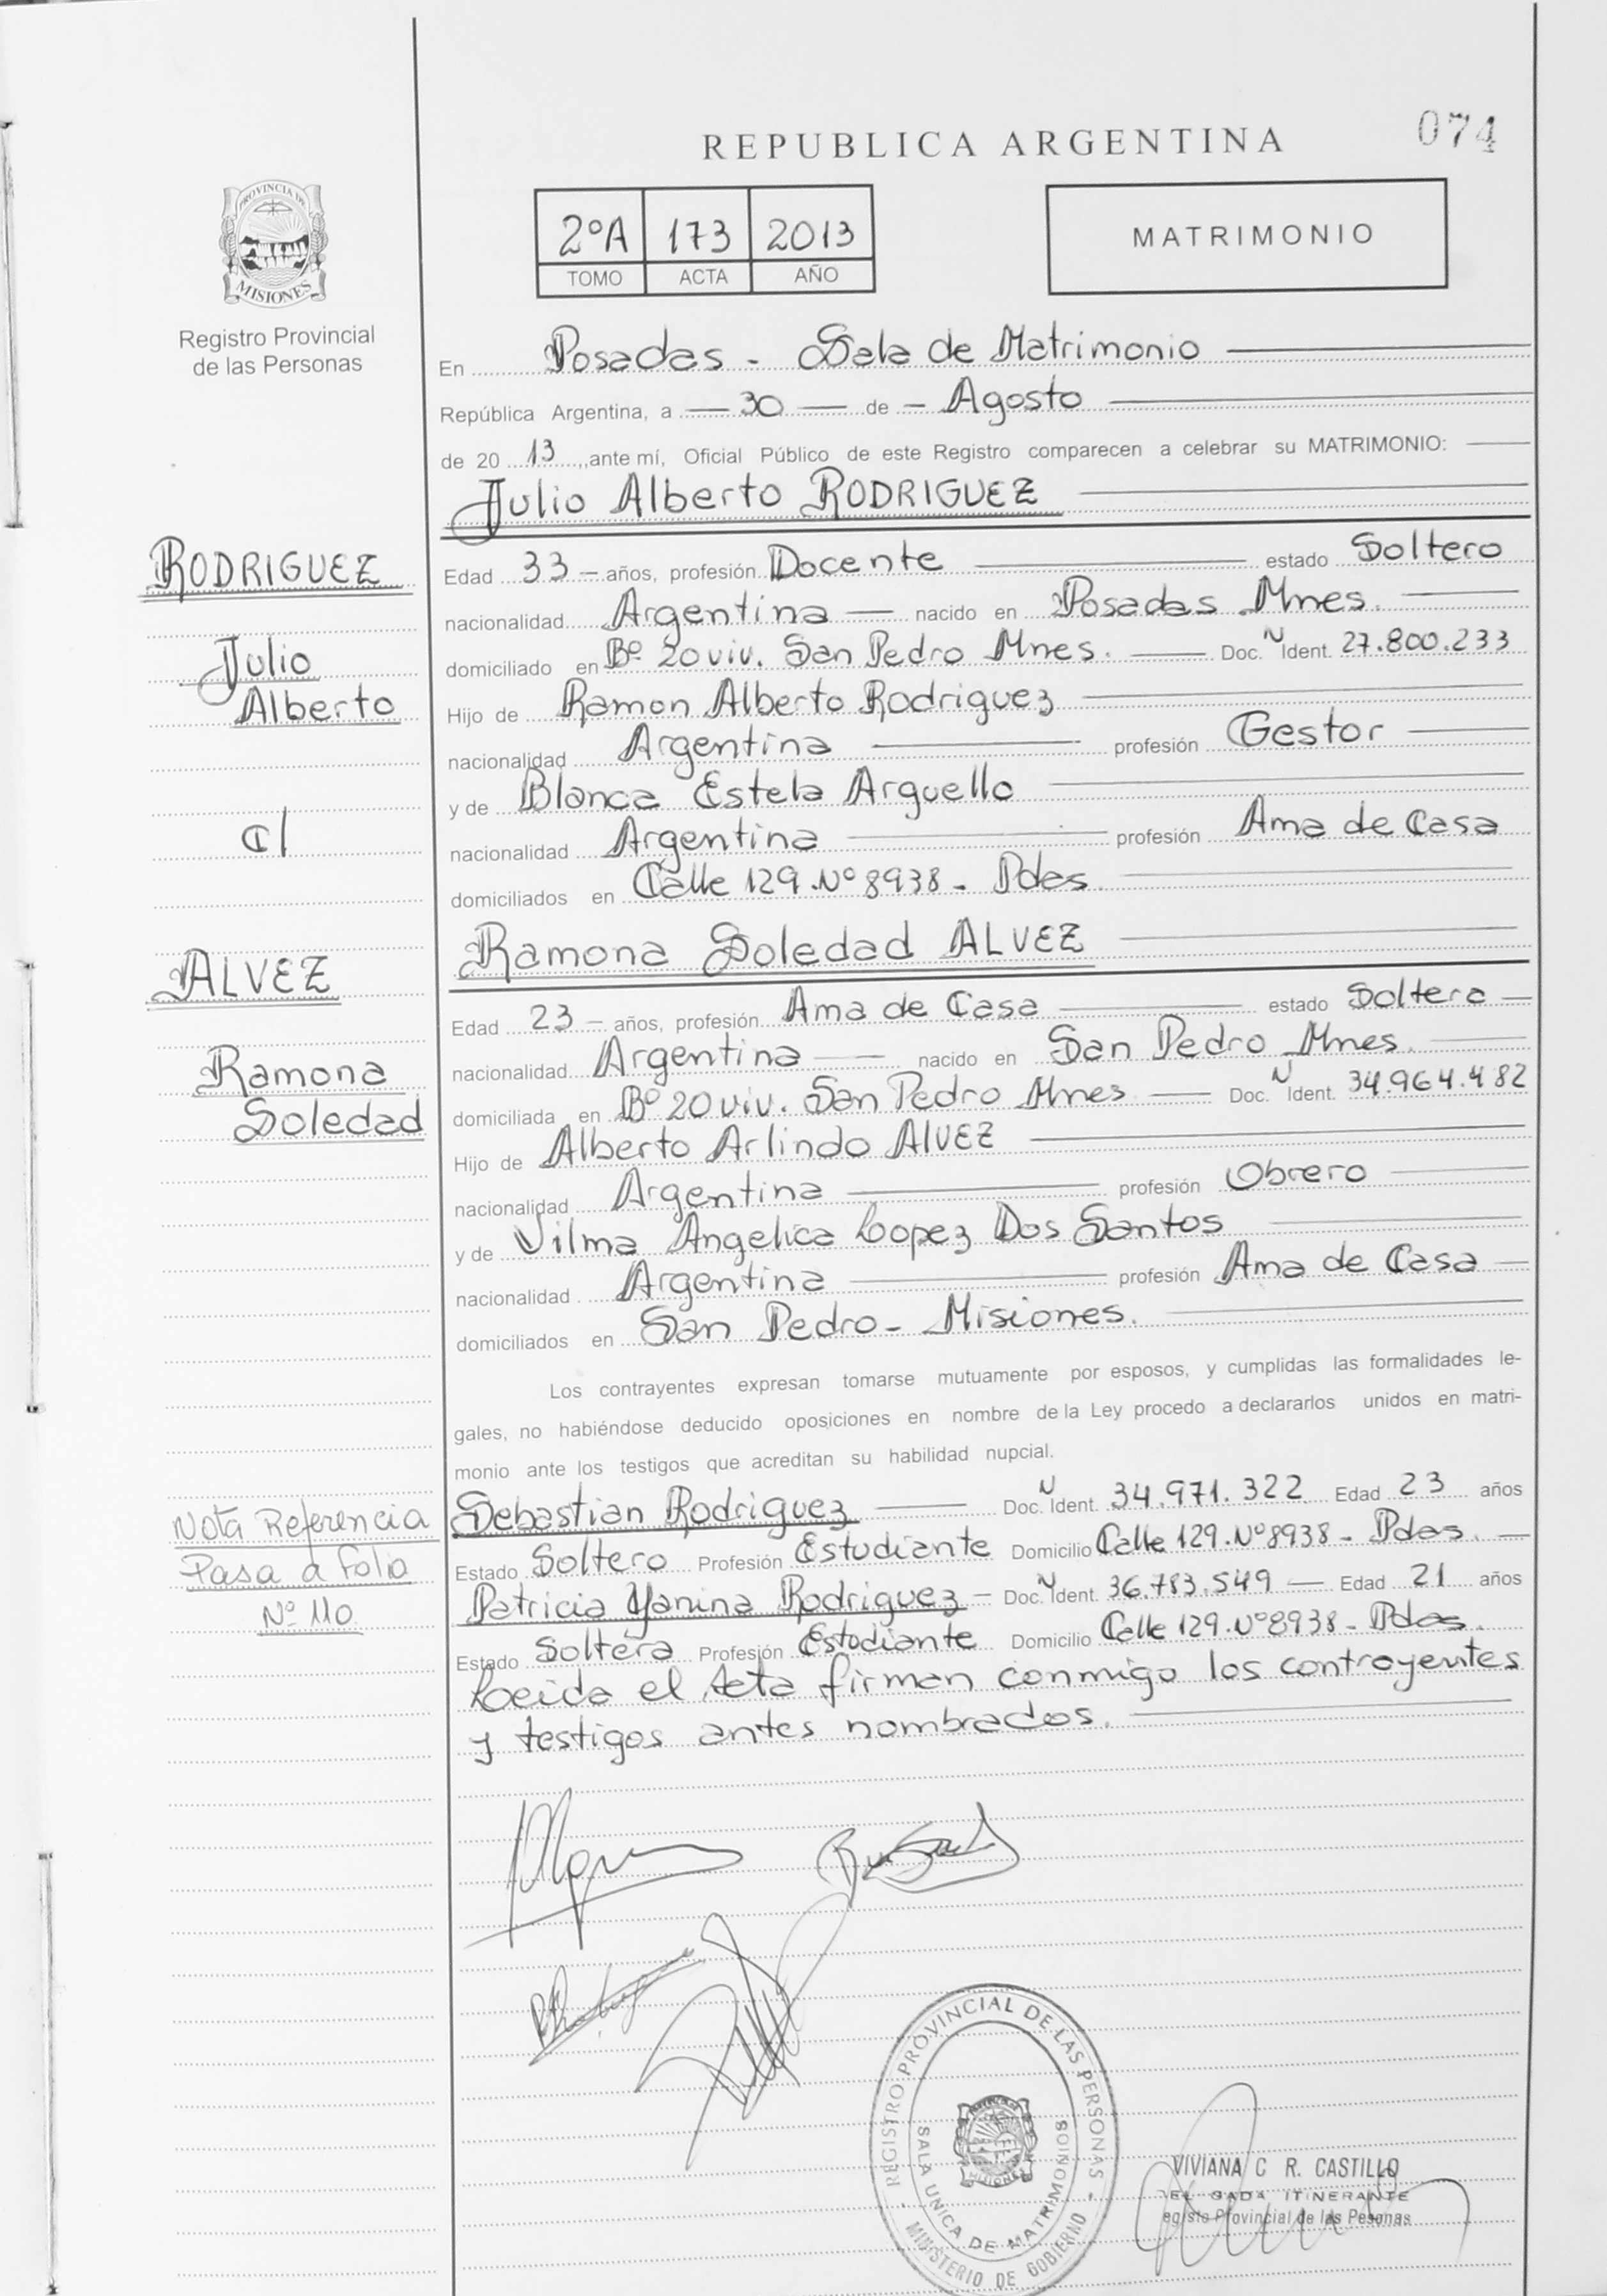 074
REPUBLICA ARGENTINA
PROVINCIA DE
MISIONES
Registro Provincial
de las Personas
2ºA 173 2013
TOMO ACTA AÑO
MATRIMONIO
En Posadas - Sala de Matrimonio
República Argentina, a 30 de Agosto
de 20 13, ante mí, Oficial Público de este Registro comparecen a celebrar su MATRIMONIO:
Julio Alberto RODRIGUEZ
RODRIGUEZ
Julio
Alberto
c/
ALVEZ
Ramona
Soledad
Edad 33 años, profesión Docente estado Soltero
nacionalidad Argentina nacido en Posadas Mnes.
domiciliado en Bº 20 viv. San Pedro Mnes. Doc. N Ident. 27.800.233
Hijo de Ramon Alberto Rodriguez
nacionalidad Argentina profesión Gestor
y de Blanca Estela Arguello
nacionalidad Argentina profesión Ama de Casa
domiciliados en Calle 129.Nº 8938 - Pdas.
Ramona Soledad ALVEZ
Edad 23 años, profesión Ama de Casa estado Soltera
nacionalidad Argentina nacido en San Pedro Mnes.
domiciliada en Bº 20 viv. San Pedro Mnes Doc. N Ident. 34.964.482
Hijo de Alberto Arlindo AlVEZ
nacionalidad Argentina profesión Obrero
y de Vilma Angelica Lopez Dos Santos
nacionalidad Argentina profesión Ama de Casa
domiciliados en San Pedro - Misiones.
Los contrayentes expresan tomarse mutuamente por esposos, y cumplidas las formalidades le-
gales, no habiéndose deducido oposiciones en nombre de la Ley procedo a declararlos unidos en matri-
monio ante los testigos que acreditan su habilidad nupcial.
Nota Referencia
Pasa a folio
Nº 110
Sebastian Rodriguez Doc. N Ident. 34.971.322 Edad 23 años
Estado Soltero Profesión Estudiante Domicilio Calle 129.Nº8938 - Pdas.
Patricia Yanina Rodriguez - Doc. N Ident. 36.783.549 Edad 21 años
Estado Soltera Profesión Estudiante Domicilio Calle 129.Nº8938 - Pdas.
Leida el Acta firman conmigo los contrayentes
y testigos antes nombrados.
REGISTRO PROVINCIAL DE LAS PERSONAS
SALA UNICA DE MATRIMONIOS
- MINISTERIO DE GOBIERNO -
MISIONES
VIVIANA C R. CASTILLO
ITINERANTE
Provincial de las Pesonas